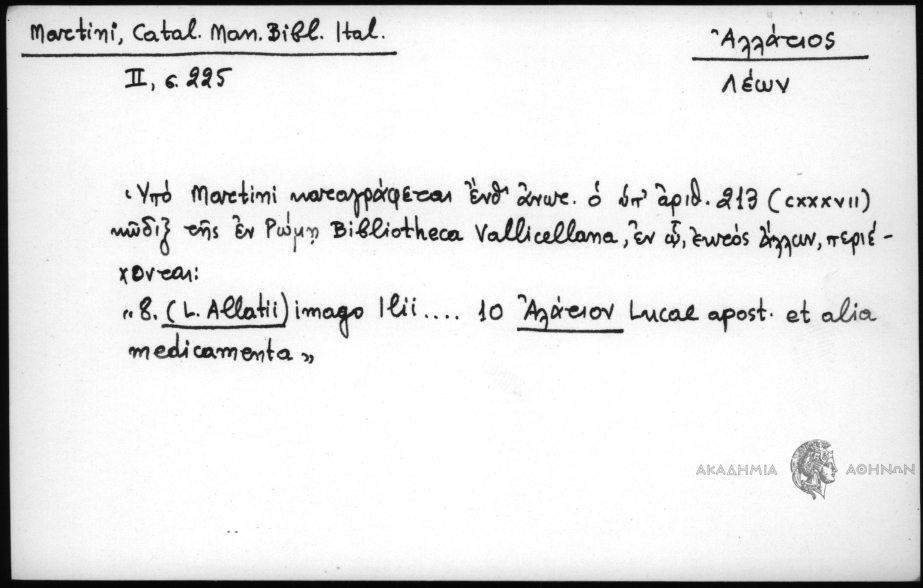 Martini, Catal. Man. Bibl. Ital.
Ἀλλάτιος
II, σ. 225
Λέων
Ὑπό Martini καταγράφεται ἔνθ' ἀνωτ. ὁ ὑπ' ἀριθ. 213 (CXXXVII)
κῶδιξ τῆς ἐν Ρώμῃ Bibliotheca Vallicellana, ἐν ᾧ, ἐκτός ἄλλων, περιέ-
χονται:
„8. (L. Allatii) imago Ilii .... 10 Ἀλάτιον Lucae apost. et alia
medicamenta„
ΑΚΑΔΗΜΙΑ ΑΘΗΝΩΝ